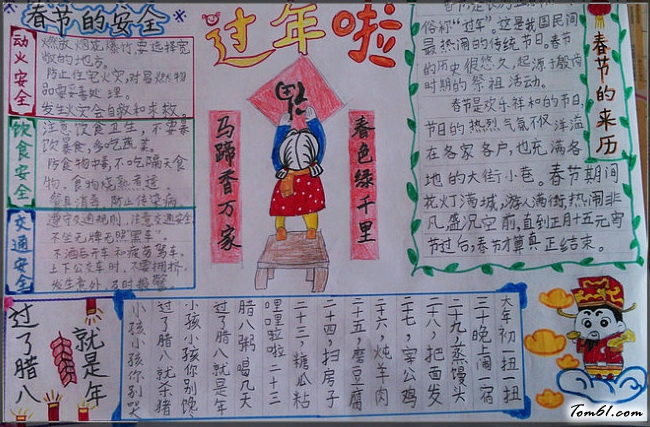 春节的安全
过年啦
动火安全
燃放烟花爆竹要选择宽
敞的地方。
防止住宅火灾,对易燃物
品要妥善处理。
发生火灾会自救和求救
饮食安全
注意饮食卫生,不要暴
饮暴食,多吃蔬菜。
防食物中毒,不吃隔夜食
物,食物烧熟煮透。
餐具消毒,防止传染病。
交通安全
遵守交通规则,注意交通安全
不坐无牌无照“黑车”。
不酒后开车和疲劳驾车。
上下公交车时,不要拥挤,
发生意外,及时报警
马蹄香万家
春色绿千里
春节的来历
俗称“过年”。这是我国民间
最热闹的传统节日。春节
的历史很悠久,起源于殷商
时期的祭祖活动。
春节是欢乐祥和的节日,
节日的热烈气氛不仅洋溢
在各家各户,也充满各
地的大街小巷。春节期间
花灯满城,游人满街,热闹非
凡,盛况空前,直到正月十五元宵
节过后,春节才算真正结束。
过了腊八
就是年
小孩小孩你别哭
过了腊八就杀猪
小孩小孩你别馋
过了腊八就是年
腊八粥喝几天
哩哩啦啦二十三
二十三,糖瓜粘
二十四,扫房子
二十五,磨豆腐
二十六,炖羊肉
二十七,宰公鸡
二十八,把面发
二十九,蒸馒头
三十晚上闹一宿
大年初一扭一扭
Tom61.com